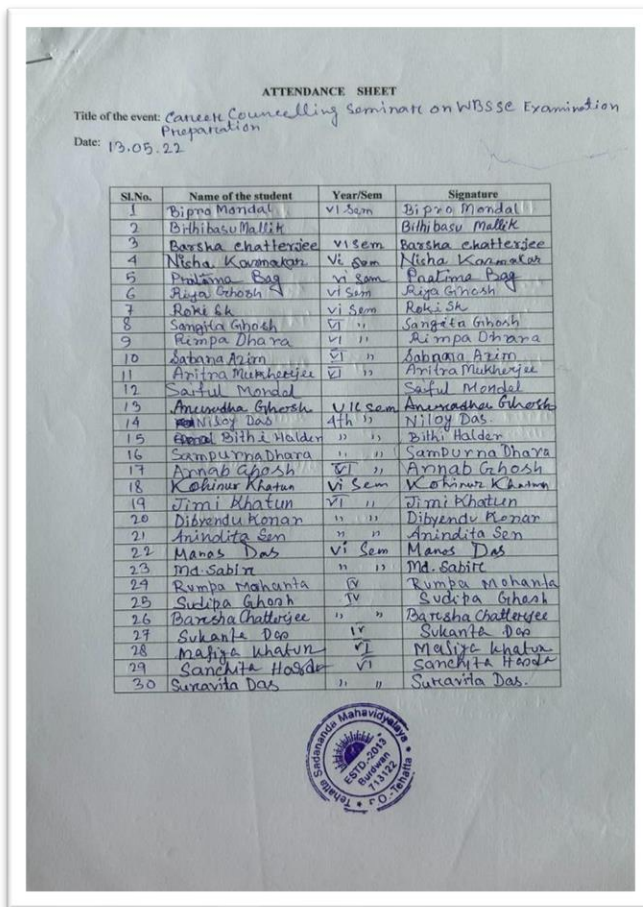 ATTENDANCE SHEET
Title of the event: Career Councelling Seminar on WBSSC Examination
Preparation
Date: 13.05.22
Sl.No. Name of the student Year/Sem Signature
1 Bipro Mondal VI Sem Bipro Mondal
2 Bithibasu Mallik Bithibasu Mallik
3 Barsha Chatterjee VI Sem Barsha Chatterjee
4 Nisha Karmakar Vi Sem Nisha Karmakar
5 Pratima Bag vi Sem Pratima Bag
6 Riya Ghosh vi Sem Riya Ghosh
7 Roki Sk vi Sem Roki Sk
8 Sangita Ghosh VI " Sangita Ghosh
9 Rimpa Dhara VI " Rimpa Dhara
10 Sabana Azim VI " Sabnana Azim
11 Aritra Mukherjee VI " Aritra Mukherjee
12 Saiful Mondal Saiful Mondal
13 Anuradha Ghosh Sem Anuradha Ghosh
14 Niloy Das 4th " Niloy Das.
15 Bithi Halder " " Bithi Halder
16 Sampurna Dhara " " Sampurna Dhara
17 Arnab Ghosh VI " Arnab Ghosh
18 Kohinur Khatun Vi Sem Kohinur Khatun
19 Jimi Khatun VI " Jimi Khatun
20 Dibyendu Konar " " Dibyendu Konar
21 Anindita Sen " " Anindita Sen
22 Manos Das Vi Sem Manos Das
23 Md. Sabir " " Md. Sabir
24 Rumpa Mohanta IV Rumpa Mohanta
25 Sudipa Ghosh IV Sudipa Ghosh
26 Barsha Chatterjee " " Barsha Chatterjee
27 Sukanta Das IV Sukanta Das
28 Mafiza Khatun VI Mafiza Khatun
29 Sanchita Hasda VI Sanchita Hasda
30 Suravita Das " " Suravita Das.
Tehatta Sadananda Mahavidyalaya
ESTD.-2013
Burdwan
713122
P.O.-Tehatta